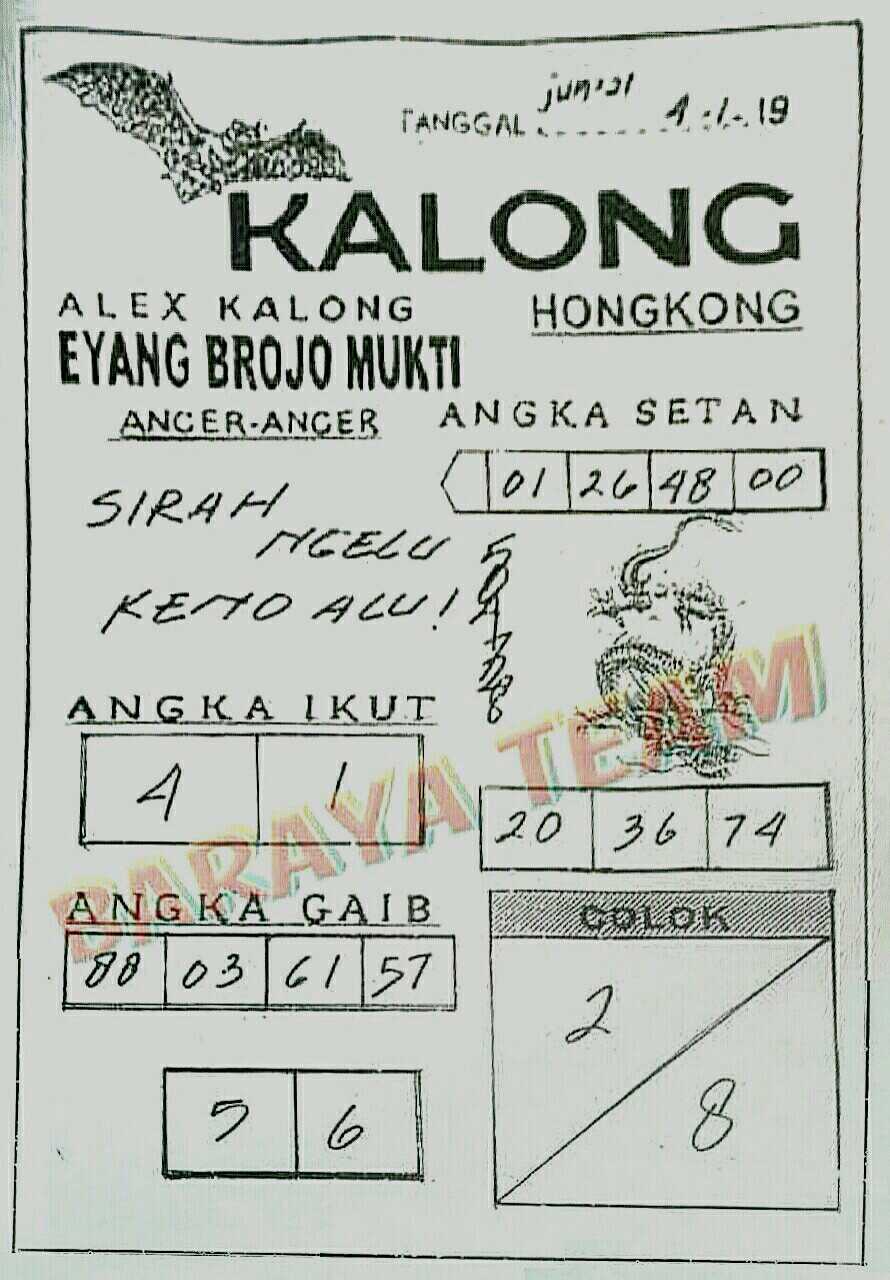 TANGGAL jum'at 4-1-19
KALONG
ALEX KALONG
HONGKONG
EYANG BROJO MUKTI
ANGER-ANGER
ANGKA SETAN
01 26 48 00
SIRAH
NGELU
KENO ALU!
ANGKA IKUT
4 1
20 36 74
ANGKA GAIB
88 03 61 57
COLOK
2
8
5 6
BARAYA TEAM